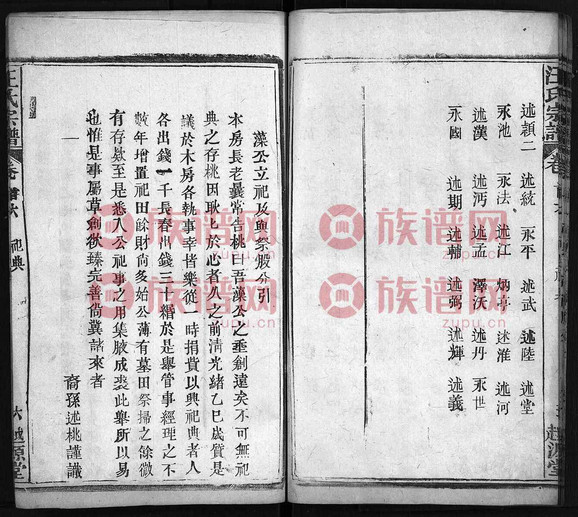 汪氏宗譜
述頴二 述統 永平 述武 述陸 述堂
永池 永法 述江 炳亭 述淮 述河
述漢 述沔 述孟 澤沃 述丹 永世
永國 述期 述輔 述弼 述輝 述義
越源堂
藻公立祀及與祭股分引
本房長老曩常告桃曰吾藻公之垂創遠矣不可無祀
典之存桃因耿匕於心者久之前清光緒乙巳歲質是
議於本房各執事幸皆樂從一時捐貲以興祀典者人
各出錢一千長春出錢三十緡於是舉管事經理之不
數年增置祀田餘財尚多始公薄有墓田祭掃之餘微
有存欵至是悉入公祀事之用集腋成裘此舉所以易
也惟是事屬草創欲臻完善尚冀諸來者
裔孫述桃謹識
汪氏宗譜 卷首 祀典
六 越源堂
族谱网
zupu.cn
族谱网
zupu.cn
族谱网
zupu.cn
族谱网
zupu.cn